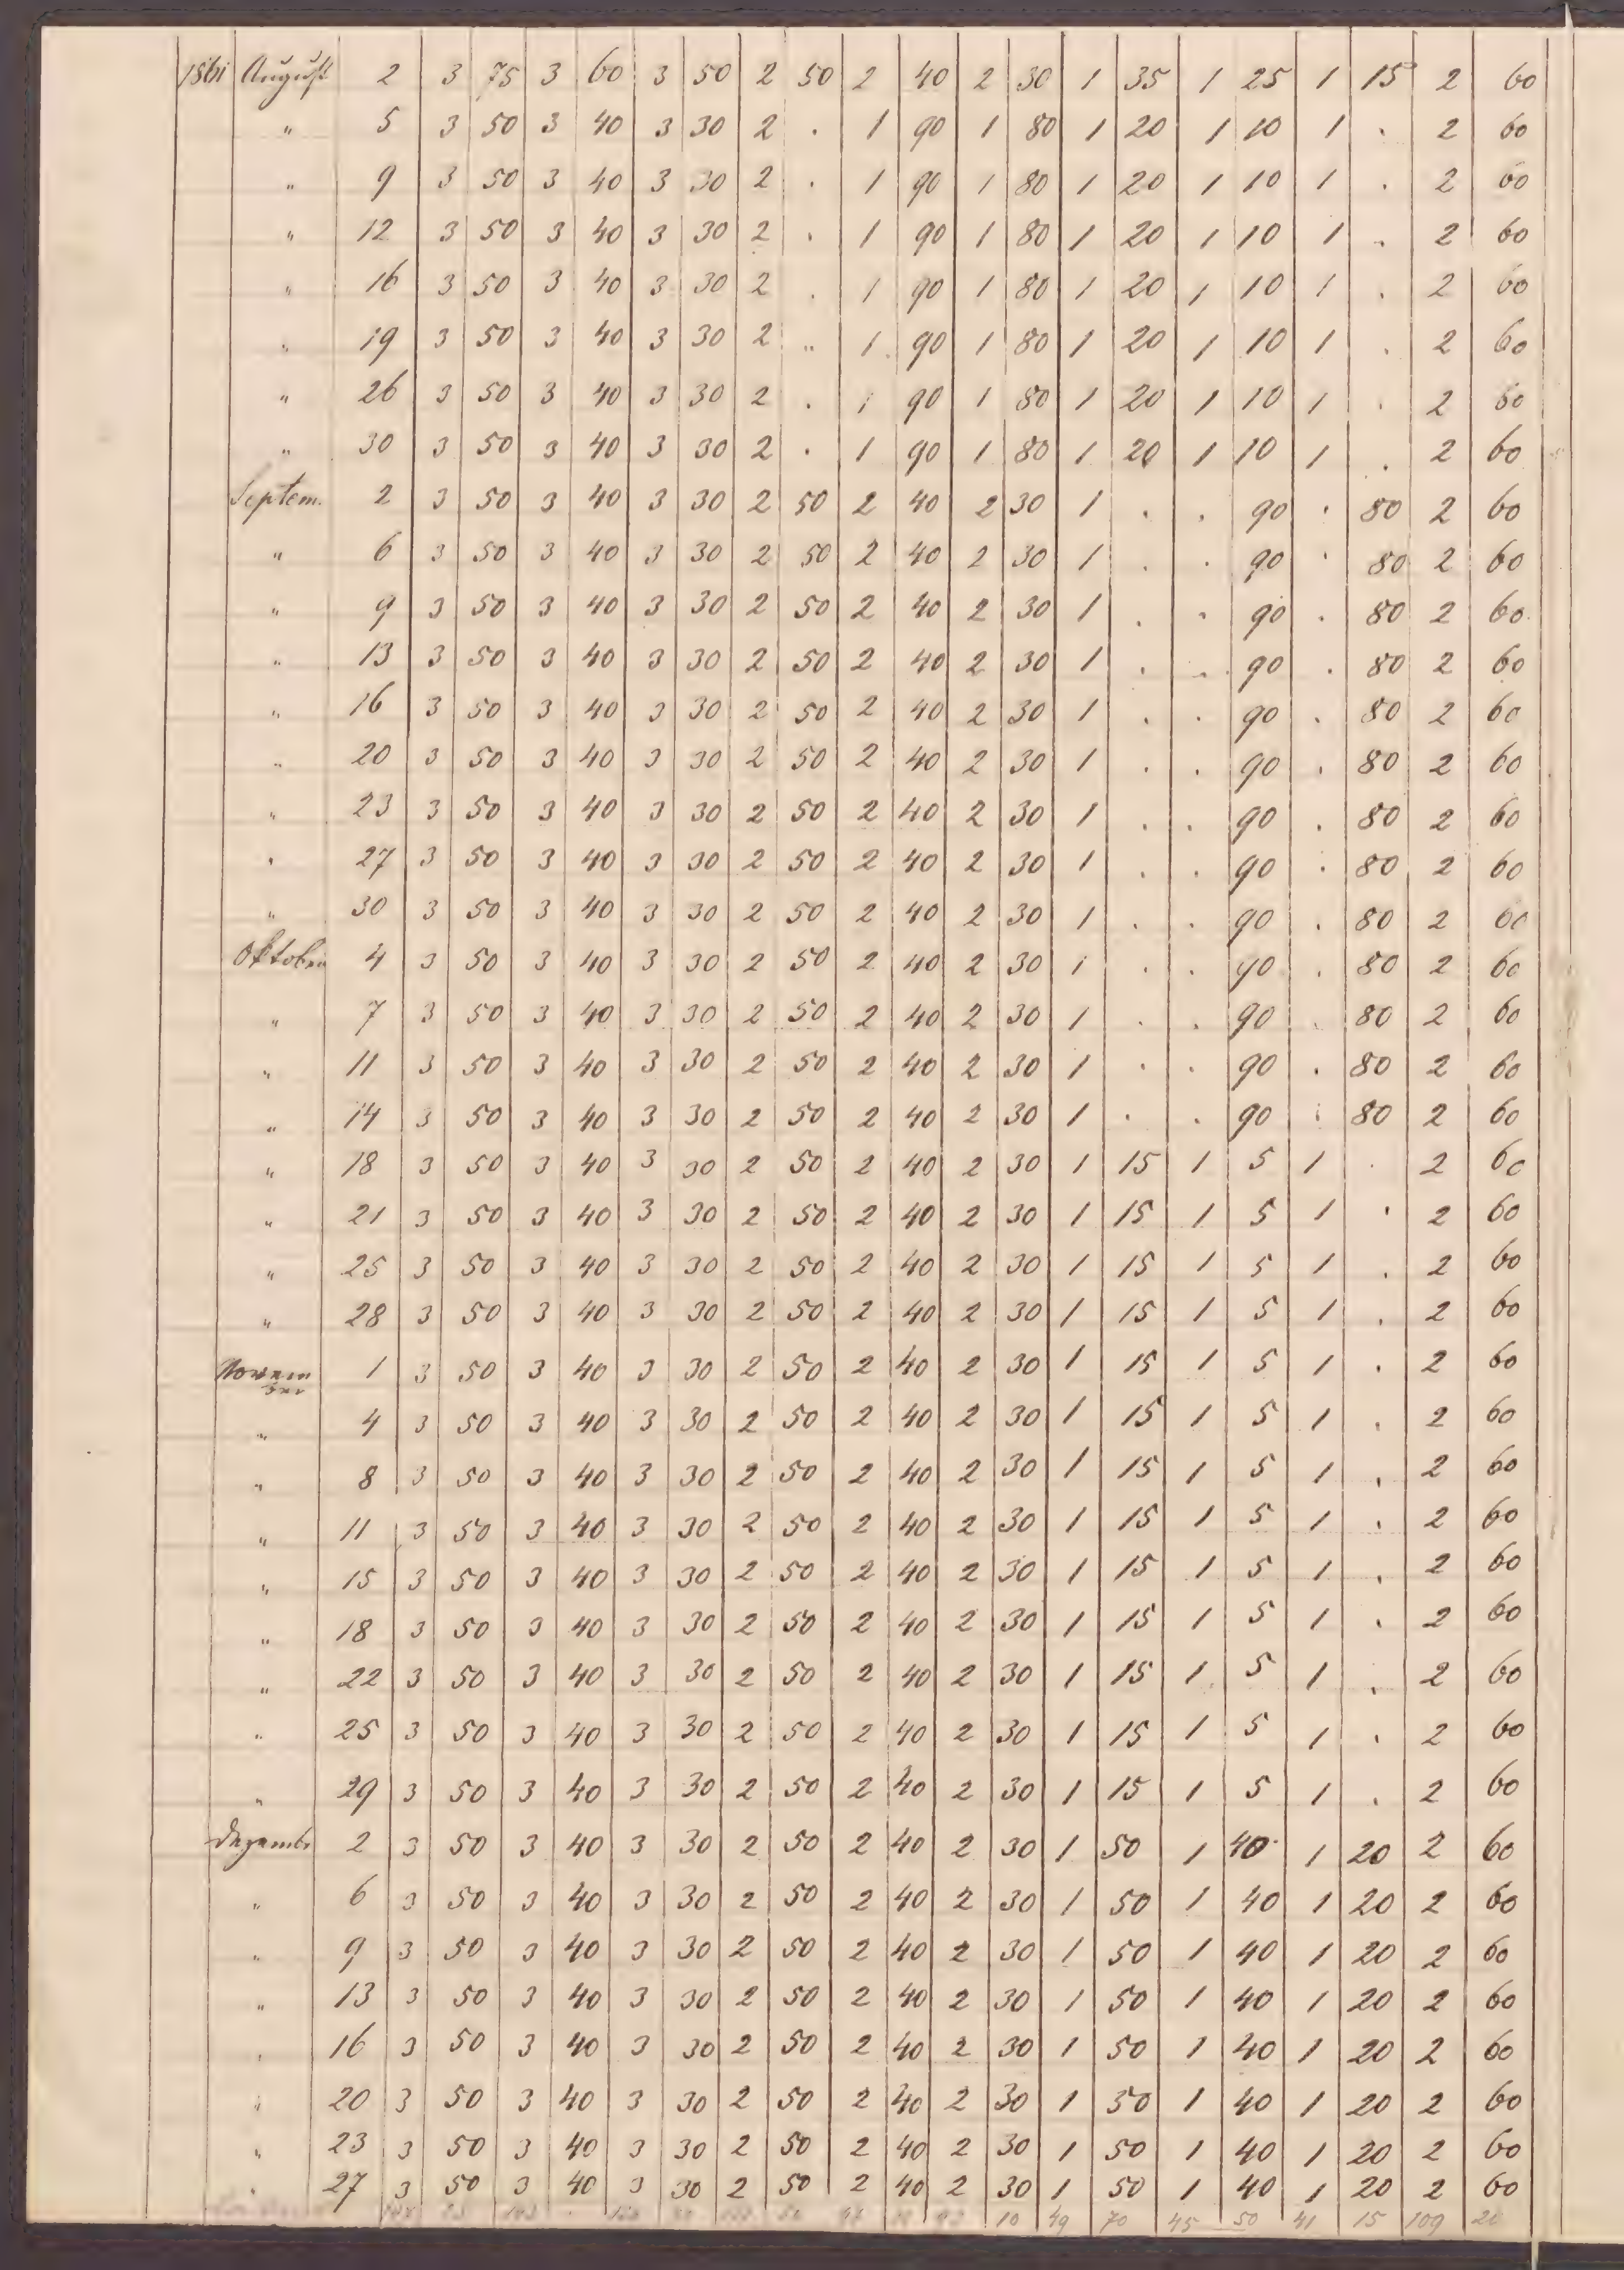 1861 August 2 3 75 3 60 3 50 2 50 2 40 2 30 1 35 1 25 1 15 2 60
" 5 3 50 3 40 3 30 2 . 1 90 1 80 1 20 1 10 1 . 2 60
" 9 3 50 3 40 3 30 2 . 1 90 1 80 1 20 1 10 1 . 2 60
" 12 3 50 3 40 3 30 2 . 1 90 1 80 1 20 1 10 1 . 2 60
" 16 3 50 3 40 3 30 2 . 1 90 1 80 1 20 1 10 1 . 2 60
" 19 3 50 3 40 3 30 2 .. 1 90 1 80 1 20 1 10 1 . 2 60
" 26 3 50 3 40 3 30 2 . 1 90 1 80 1 20 1 10 1 . 2 60
" 30 3 50 3 40 3 30 2 . 1 90 1 80 1 20 1 10 1 . 2 60
Septem. 2 3 50 3 40 3 30 2 50 2 40 2 30 1 . . 90 . 80 2 60
" 6 3 50 3 40 3 30 2 50 2 40 2 30 1 . . 90 . 80 2 60
" 9 3 50 3 40 3 30 2 50 2 40 2 30 1 . . 90 . 80 2 60
" 13 3 50 3 40 3 30 2 50 2 40 2 30 1 . . 90 . 80 2 60
" 16 3 50 3 40 3 30 2 50 2 40 2 30 1 . . 90 . 80 2 60
" 20 3 50 3 40 3 30 2 50 2 40 2 30 1 . . 90 . 80 2 60
" 23 3 50 3 40 3 30 2 50 2 40 2 30 1 . . 90 . 80 2 60
" 27 3 50 3 40 3 30 2 50 2 40 2 30 1 . . 90 . 80 2 60
" 30 3 50 3 40 3 30 2 50 2 40 2 30 1 . . 90 . 80 2 60
Oktober 4 3 50 3 40 3 30 2 50 2 40 2 30 1 . . 90 . 80 2 60
" 7 3 50 3 40 3 30 2 50 2 40 2 30 1 . . 90 . 80 2 60
" 11 3 50 3 40 3 30 2 50 2 40 2 30 1 . . 90 . 80 2 60
" 14 3 50 3 40 3 30 2 50 2 40 2 30 1 . . 90 . 80 2 60
" 18 3 50 3 40 3 30 2 50 2 40 2 30 1 15 1 5 1 . 2 60
" 21 3 50 3 40 3 30 2 50 2 40 2 30 1 15 1 5 1 . 2 60
" 25 3 50 3 40 3 30 2 50 2 40 2 30 1 15 1 5 1 . 2 60
" 28 3 50 3 40 3 30 2 50 2 40 2 30 1 15 1 5 1 . 2 60
Novem ber 1 3 50 3 40 3 30 2 50 2 40 2 30 1 15 1 5 1 . 2 60
" 4 3 50 3 40 3 30 2 50 2 40 2 30 1 15 1 5 1 . 2 60
" 8 3 50 3 40 3 30 2 50 2 40 2 30 1 15 1 5 1 . 2 60
" 11 3 50 3 40 3 30 2 50 2 40 2 30 1 15 1 5 1 . 2 60
" 15 3 50 3 40 3 30 2 50 2 40 2 30 1 15 1 5 1 . 2 60
" 18 3 50 3 40 3 30 2 50 2 40 2 30 1 15 1 5 1 . 2 60
" 22 3 50 3 40 3 30 2 50 2 40 2 30 1 15 1 5 1 . 2 60
" 25 3 50 3 40 3 30 2 50 2 40 2 30 1 15 1 5 1 . 2 60
" 29 3 50 3 40 3 30 2 50 2 40 2 30 1 15 1 5 1 . 2 60
Dezembr 2 3 50 3 40 3 30 2 50 2 40 2 30 1 50 1 40 1 20 2 60
" 6 3 50 3 40 3 30 2 50 2 40 2 30 1 50 1 40 1 20 2 60
" 9 3 50 3 40 3 30 2 50 2 40 2 30 1 50 1 40 1 20 2 60
" 13 3 50 3 40 3 30 2 50 2 40 2 30 1 50 1 40 1 20 2 60
" 16 3 50 3 40 3 30 2 50 2 40 2 30 1 50 1 40 1 20 2 60
" 20 3 50 3 40 3 30 2 50 2 40 2 30 1 50 1 40 1 20 2 60
" 23 3 50 3 40 3 30 2 50 2 40 2 30 1 50 1 40 1 20 2 60
" 27 3 50 3 40 3 30 2 50 2 40 2 30 1 50 1 40 1 20 2 60
10 49 70 45 50 41 15 109 20